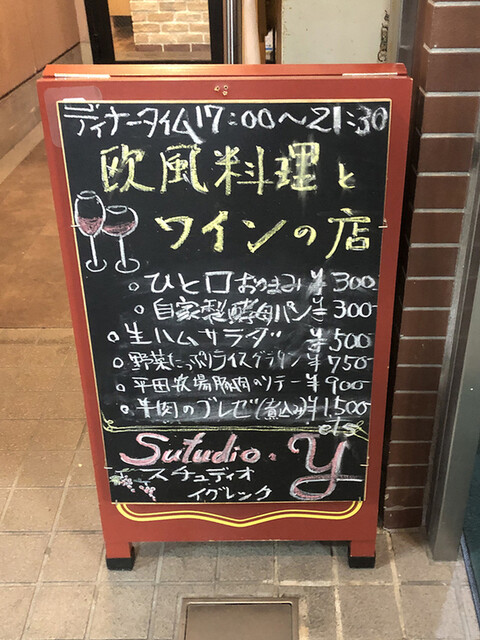 ディナータイム 17:00～21:30
欧風料理と
ワインの店
ひと口おつまみ ¥300
自家製酵母パン ¥300-
生ハムサラダ ¥500
野菜たっぷりライスグラタン ¥750-
平田牧場豚肉のソテー ¥900
牛肉のブレゼ(煮込み) ¥1,500
ets
Sutudio・Y
スチュディオ
イグレック